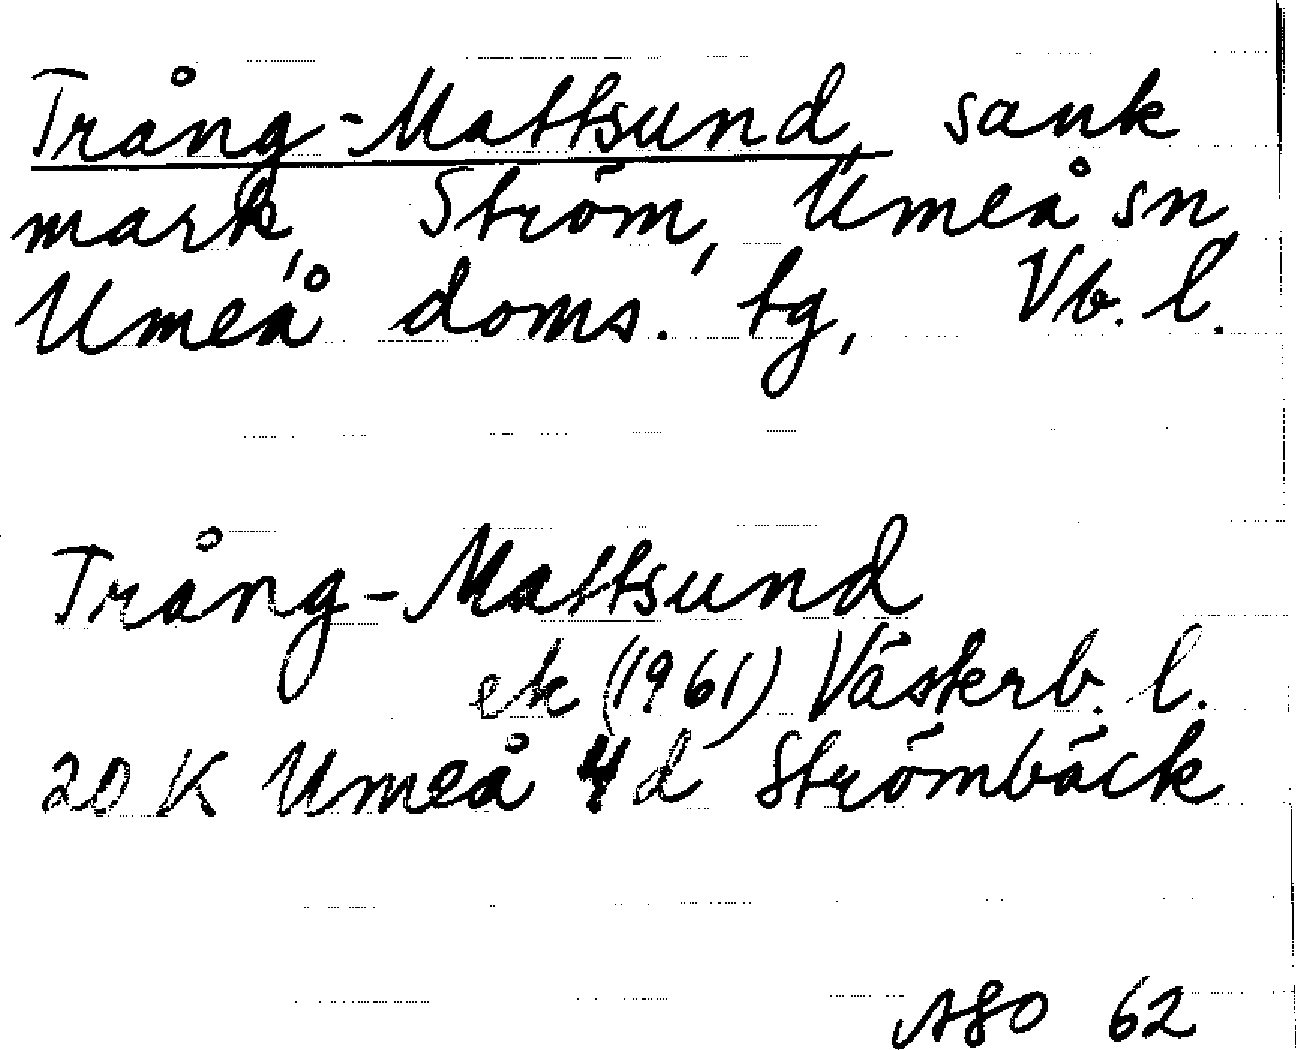 Trång-Mattsund, sank
mark, Ström, Umeå sn,
Umeå doms. tg, Vb. l.
Trång-Mattsund
ek (1961) Västerb. l.
20 K Umeå 4d Strömbäck
62